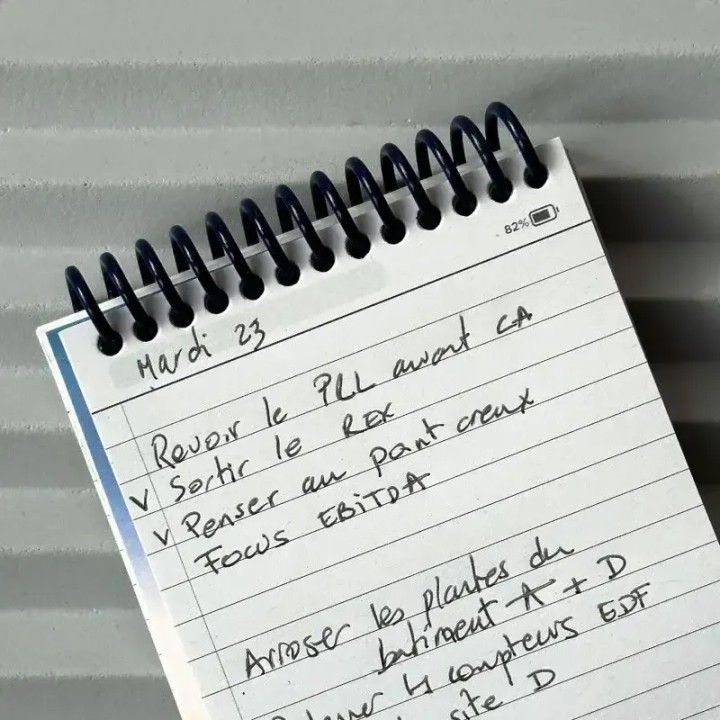 82%
Mardi 23
Revoir le PLL avant CA
V Sortir le REX
V Penser au point creux
Focus EBITDA
Arroser les plantes du
batiment A + D
les compteurs EDF
site D